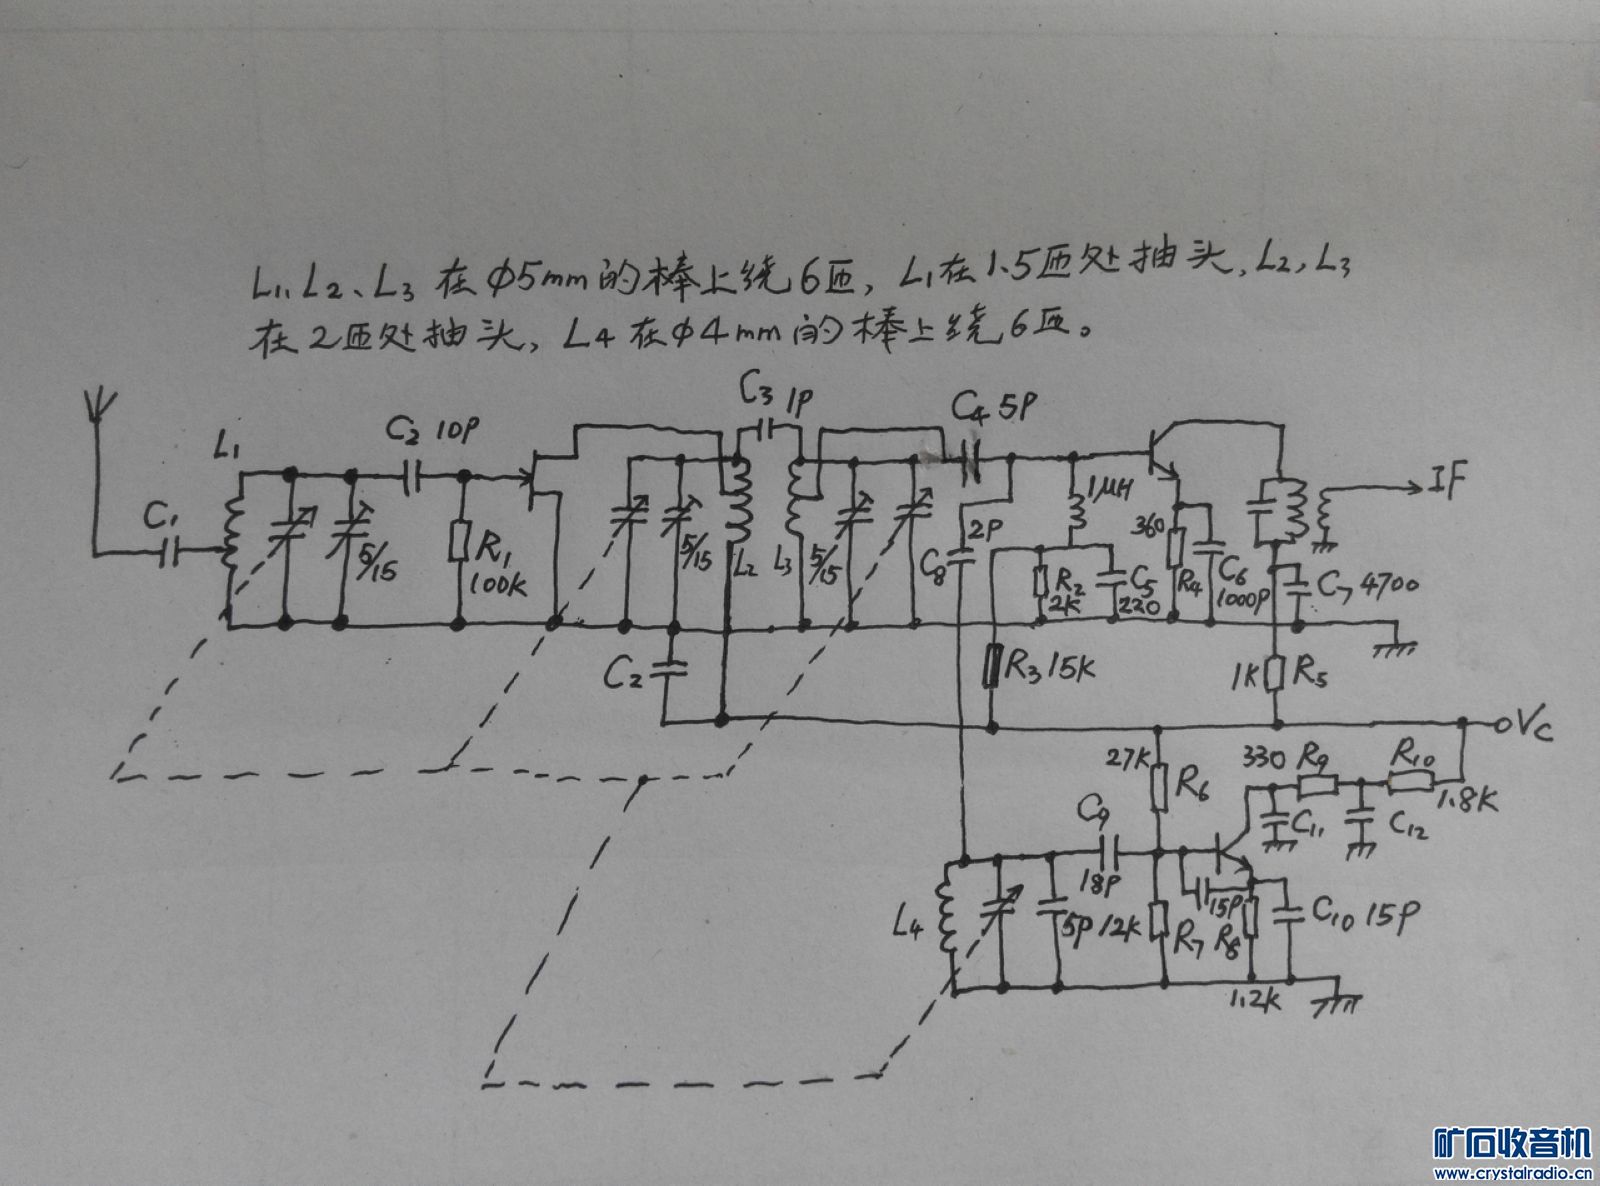 L₁、L₂、L₃ 在 Φ5mm 的棒上绕6匝, L₁在1.5匝处抽头, L₂, L₃
在2匝处抽头, L₄在Φ4mm的棒上绕6匝。
C₃ 1P
C₂ 10P
C₄ 5P
L₁
C₁
5/15
R₁
100K
5/15
L₂
L₃
5/15
2P
C₈
1μH
R₂
2K
C₅
220
360
R₄
C₆
1000P
IF
C₇ 4700
C₂
R₃ 15K
1K
R₅
Vc
27K
R₆
330
R₉
R₁₀
1.8K
C₉
18P
C₁₁
C₁₂
L₄
5P
12K
R₇
15P
R₈
1.2K
C₁₀ 15P
矿石收音机
www.crystalradio.cn